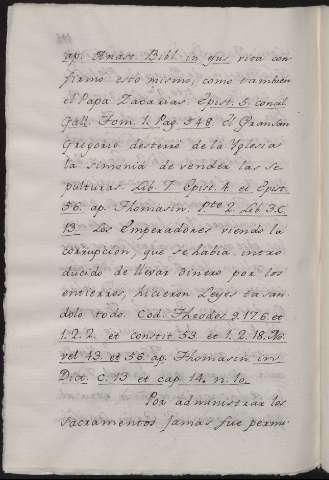 ap. Anast. Bibl in ejus vita con
firmó esto mismo, como tambien
el Papa Zacarias Epist. 5. concil
Gall. Tom. 1. Pag. 548. El Gran San
Gregorio desterró de la Yglesia
la simonia de vender las se
pulturas. Lib. 7. Epist. 4. et Epist.
56. ap. Thomasin. Pte 2. Lib. 3. C.
13. Los Emperadores viendo la
corrupcion, que se habia intro
ducido de llevar dinero por los
entierros, hicieron Leyes tasan
dolo todo. Cod. Theodos 9. 17. 6. et
1. 2. 2. et constit 53. et 1. 2. 18. No
vel 43. et 56 ap. Thomasin ins
Dict. C. 13 et cap 14. n. 10.
Por administrar los
Sacramentos jamas fue permi